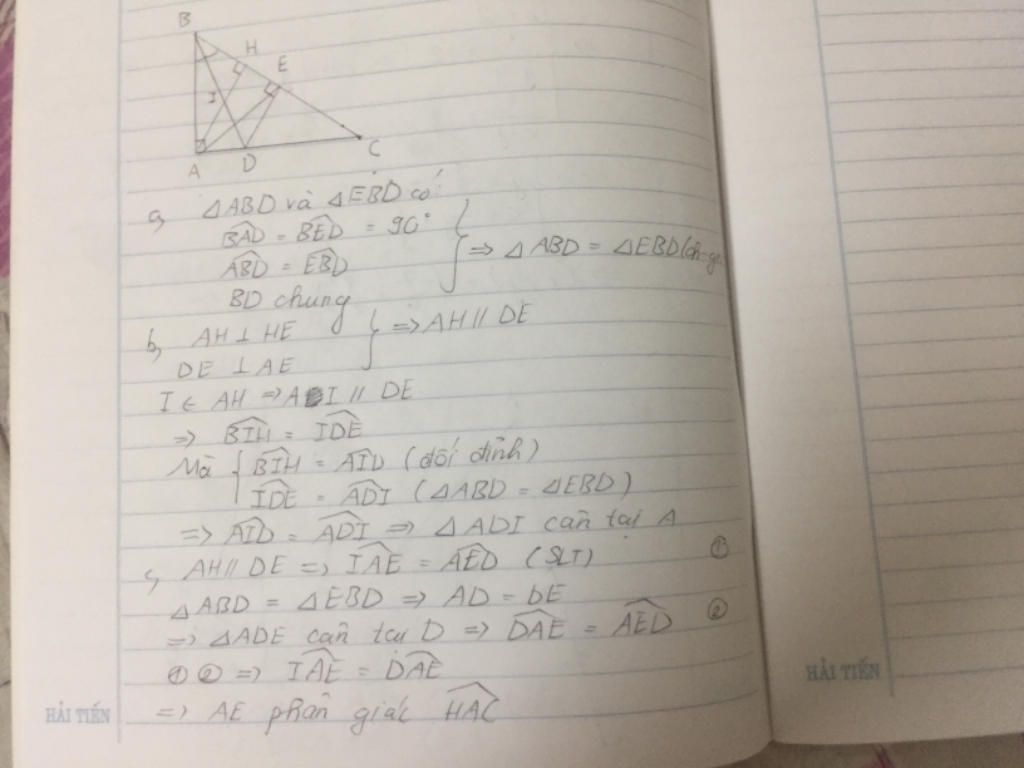 B
H
E
I
A
D
C
a, △ABD và △EBD có:
∠BAD = ∠BED = 90°
∠ABD = ∠EBD
BD chung
} ⇒ △ABD = △EBD (ch-g
b, AH ⊥ HE
DE ⊥ AE
} ⇒ AH // DE
I ∈ AH ⇒ AI // DE
⇒ ∠BIH = ∠IDE
Mà { ∠BIH = ∠AID (đối đỉnh)
∠IDE = ∠ADI (△ABD = △EBD)
⇒ ∠AID = ∠ADI ⇒ △ADI cân tại A
c, AH // DE ⇒ ∠IAE = ∠AED (SLT) ①
△ABD = △EBD ⇒ AD = DE
⇒ △ADE cân tại D ⇒ ∠DAE = ∠AED ②
① ② ⇒ ∠IAE = ∠DAE
⇒ AE phân giác ∠HAC
HẢI TIẾN
HẢI TIẾN